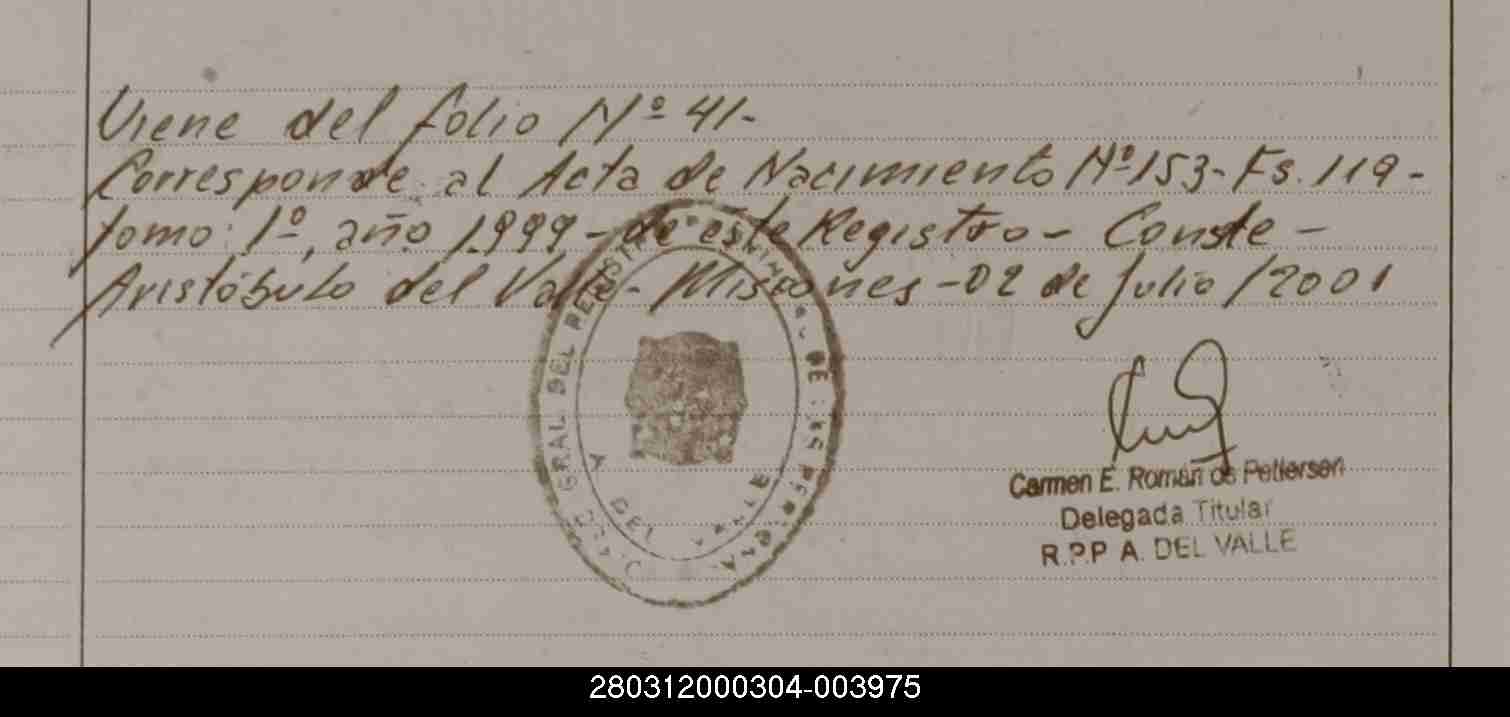 Viene del folio Nº 41-
Corresponde al Acta de Nacimiento Nº 153- Fs. 119-
tomo 1º, año 1.999- de este Registro- Conste-
Aristóbulo del Valle- Misiones- 02 de julio/2001
GRAL DEL
DE
A DEL
Carmen E. Román de
Delegada Titular
R.P.P A. DEL VALLE
280312000304-003975